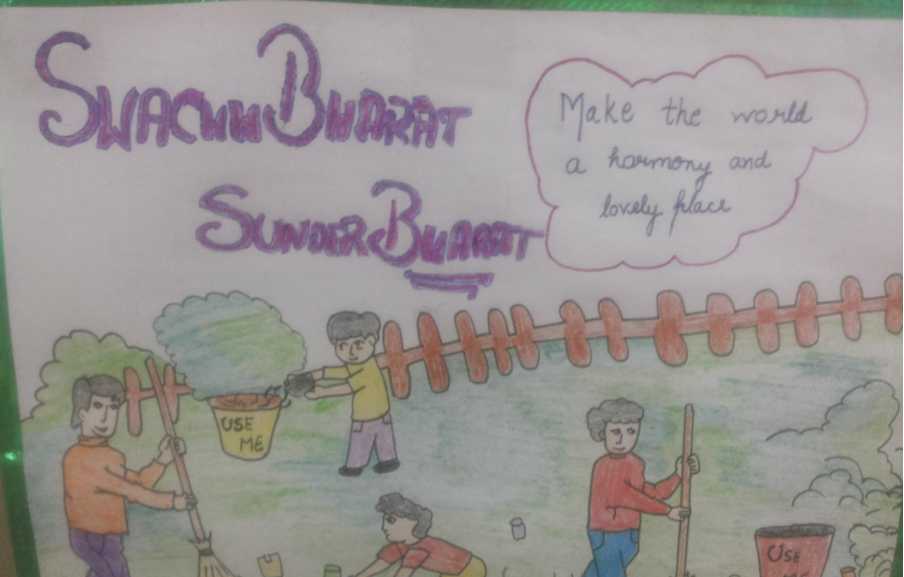 SWACHH BHARAT
SUNDER BHARAT
Make the world
a harmony and
lovely place
USE
ME
USE